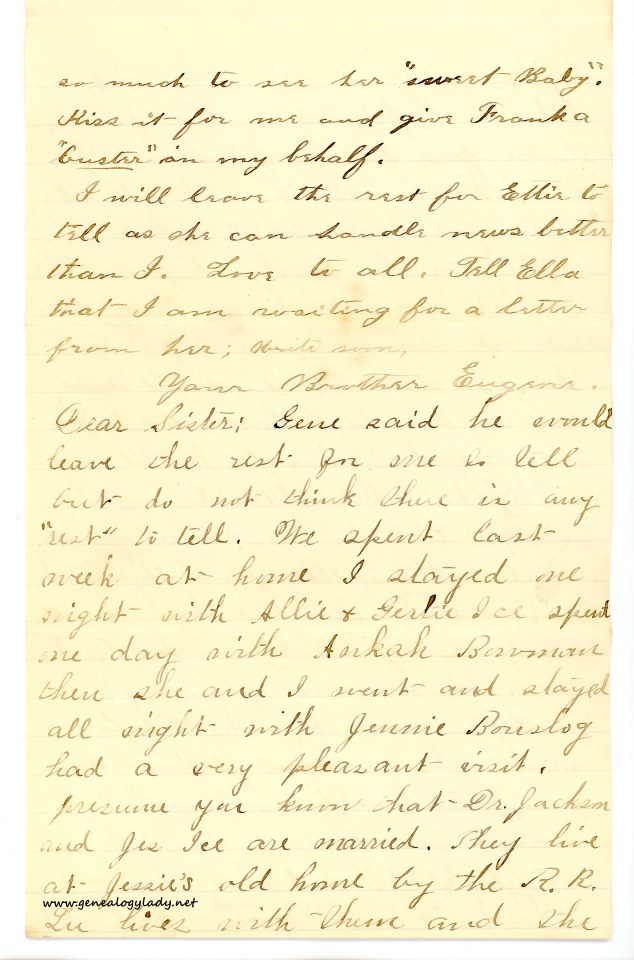 so much to see her "sweet Baby".
Kiss it for me and give Frank a
"buster" on my behalf.
I will leave the rest for Ettie to
tell as she can handle news better
than I. Love to all. Tell Ella
that I am waiting for a letter
from her; write soon,
Your Brother Eugene.
Dear Sister; Gene said he would
leave the rest for me to tell
but do not think there is any
"rest" to tell. We spent last
week at home I stayed one
night with Allie & Gertie Ice spent
one day with Ankah Bowman
then she and I went and stayed
all night with Jennie Bouslog
had a very pleasant visit.
presume you know that Dr. Jackson
and Jes Ice are married. They live
at Jessie's old home by the R. R.
www.genealogylady.net
Lu lives with them and she